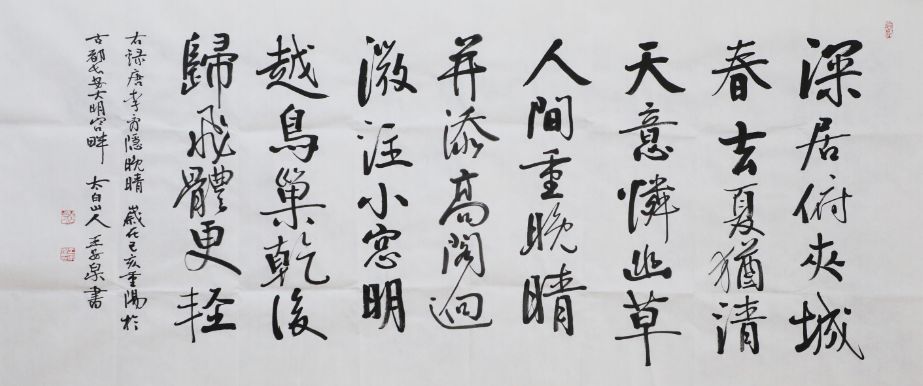 深居俯夾城
春去夏猶清
天意憐幽草
人間重晚晴
并添高閣迥
微注小窓明
越鳥巢乾後
歸飛體更軽
右録唐李商隱晚晴 歲在己亥重陽於
古都長安大明宮畔 太白山人 王 泉書